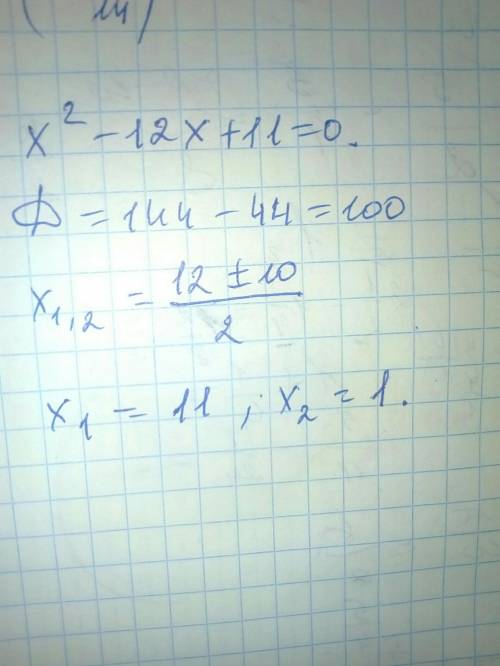 x² - 12x + 11 = 0.
D = 144 - 44 = 100
x₁,₂ = (12 ± 10)/2
x₁ = 11 ; x₂ = 1.